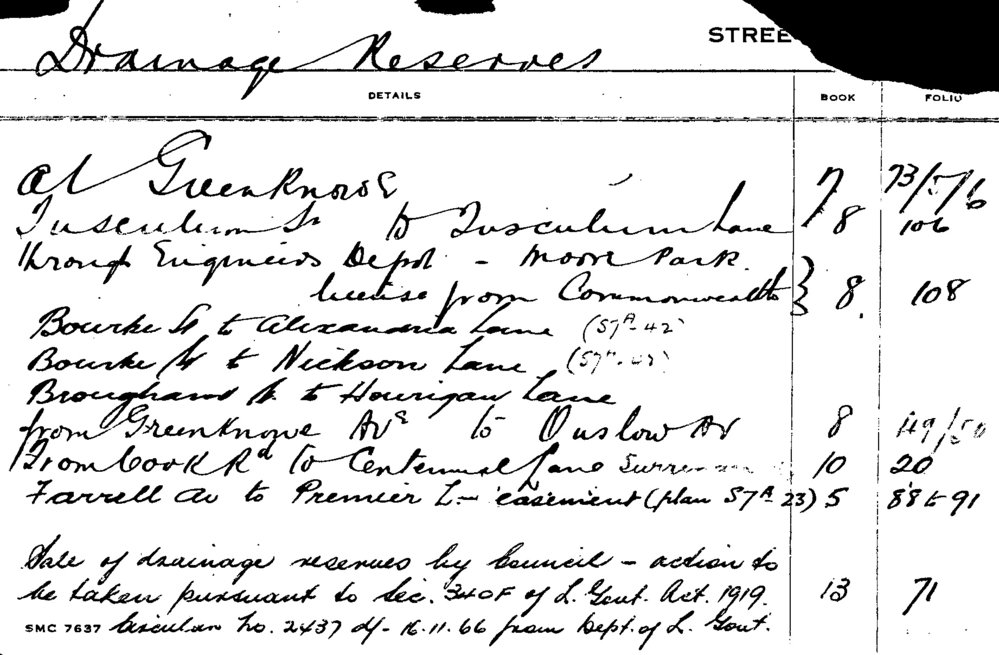 STREE
Drainage Reserves
DETAILS BOOK FOLIO
At Greenknowe 7 73/5/6
Tusculum St to Tusculum Lane 8 106
through Engineers Depot - Moore Park.
license from Commonwealth 8. 108
Bourke St to Alexandria Lane (57A-42)
Bourke St to Nickson Lane
Brougham St to Hourigan Lane
from Greenknowe Ave to Onslow Av 8 49/50
From Cook Rd to Centennial Lane 10 20
Farrell Av to Premier L- easement (plan 57A 23) 5 88 to 91
Sale of drainage reserves by Council - action to
be taken pursuant to Sec. 340F of L. Govt. Act. 1919. 13 71
SMC 7637 Circular No. 2437 d/- 16.11.66 from Dept. of L. Govt.